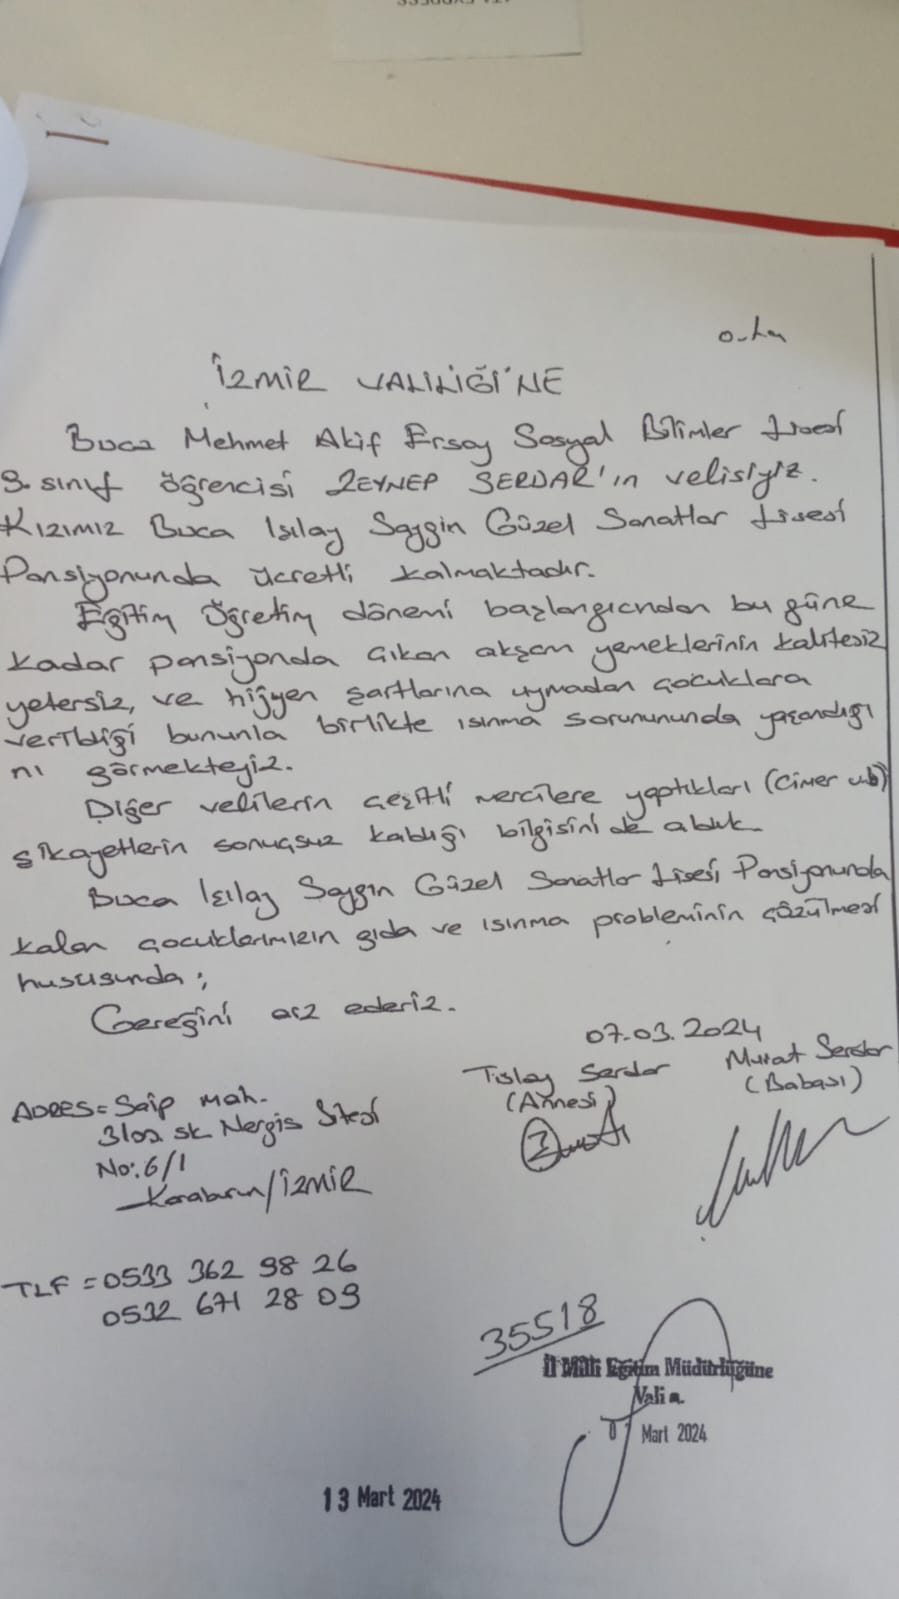 o-la
İZMİR VALİLİĞİ'NE
Buca Mehmet Akif Ersoy Sosyal Bilimler Lisesi
9. sınıf öğrencisi ZEYNEP SERDAR'ın velisiyiz.
Kızımız Buca Işılay Saygın Güzel Sanatlar Lisesi
Pansiyonunda ücretli kalmaktadır.
Eğitim Öğretim dönemi başlangıcından bu güne
kadar pansiyonda çıkan akşam yemeklerinin kalitesiz
yetersiz, ve hiğyen şartlarına uymadan çocuklara
verildiği bununla birlikte ısınma sorunununda yaşandığı
nı görmekteyiz.
Diğer velilerin çeşitli mercilere yaptıkları (Cimer vb)
şikayetlerin sonuçsuz kaldığı bilgisini de aldık.
Buca Işılay Saygın Güzel Sanatlar Lisesi Pansiyonunda
kalan çocuklarımızın gıda ve ısınma probleminin çözülmesi
hususunda;
Gereğini arz ederiz.
07.03.2024
Tislay Serdar Murat Serdar
(Annesi) (Babası)
ADRES= Saip mah.
3102 sk Nergis Sitesi
No: 6/1
Karaburun/İZMİR
TLF = 0533 362 98 26
0532 671 28 09
35518
İl Milli Eğitim Müdürlüğüne
Vali a.
Mart 2024
13 Mart 2024